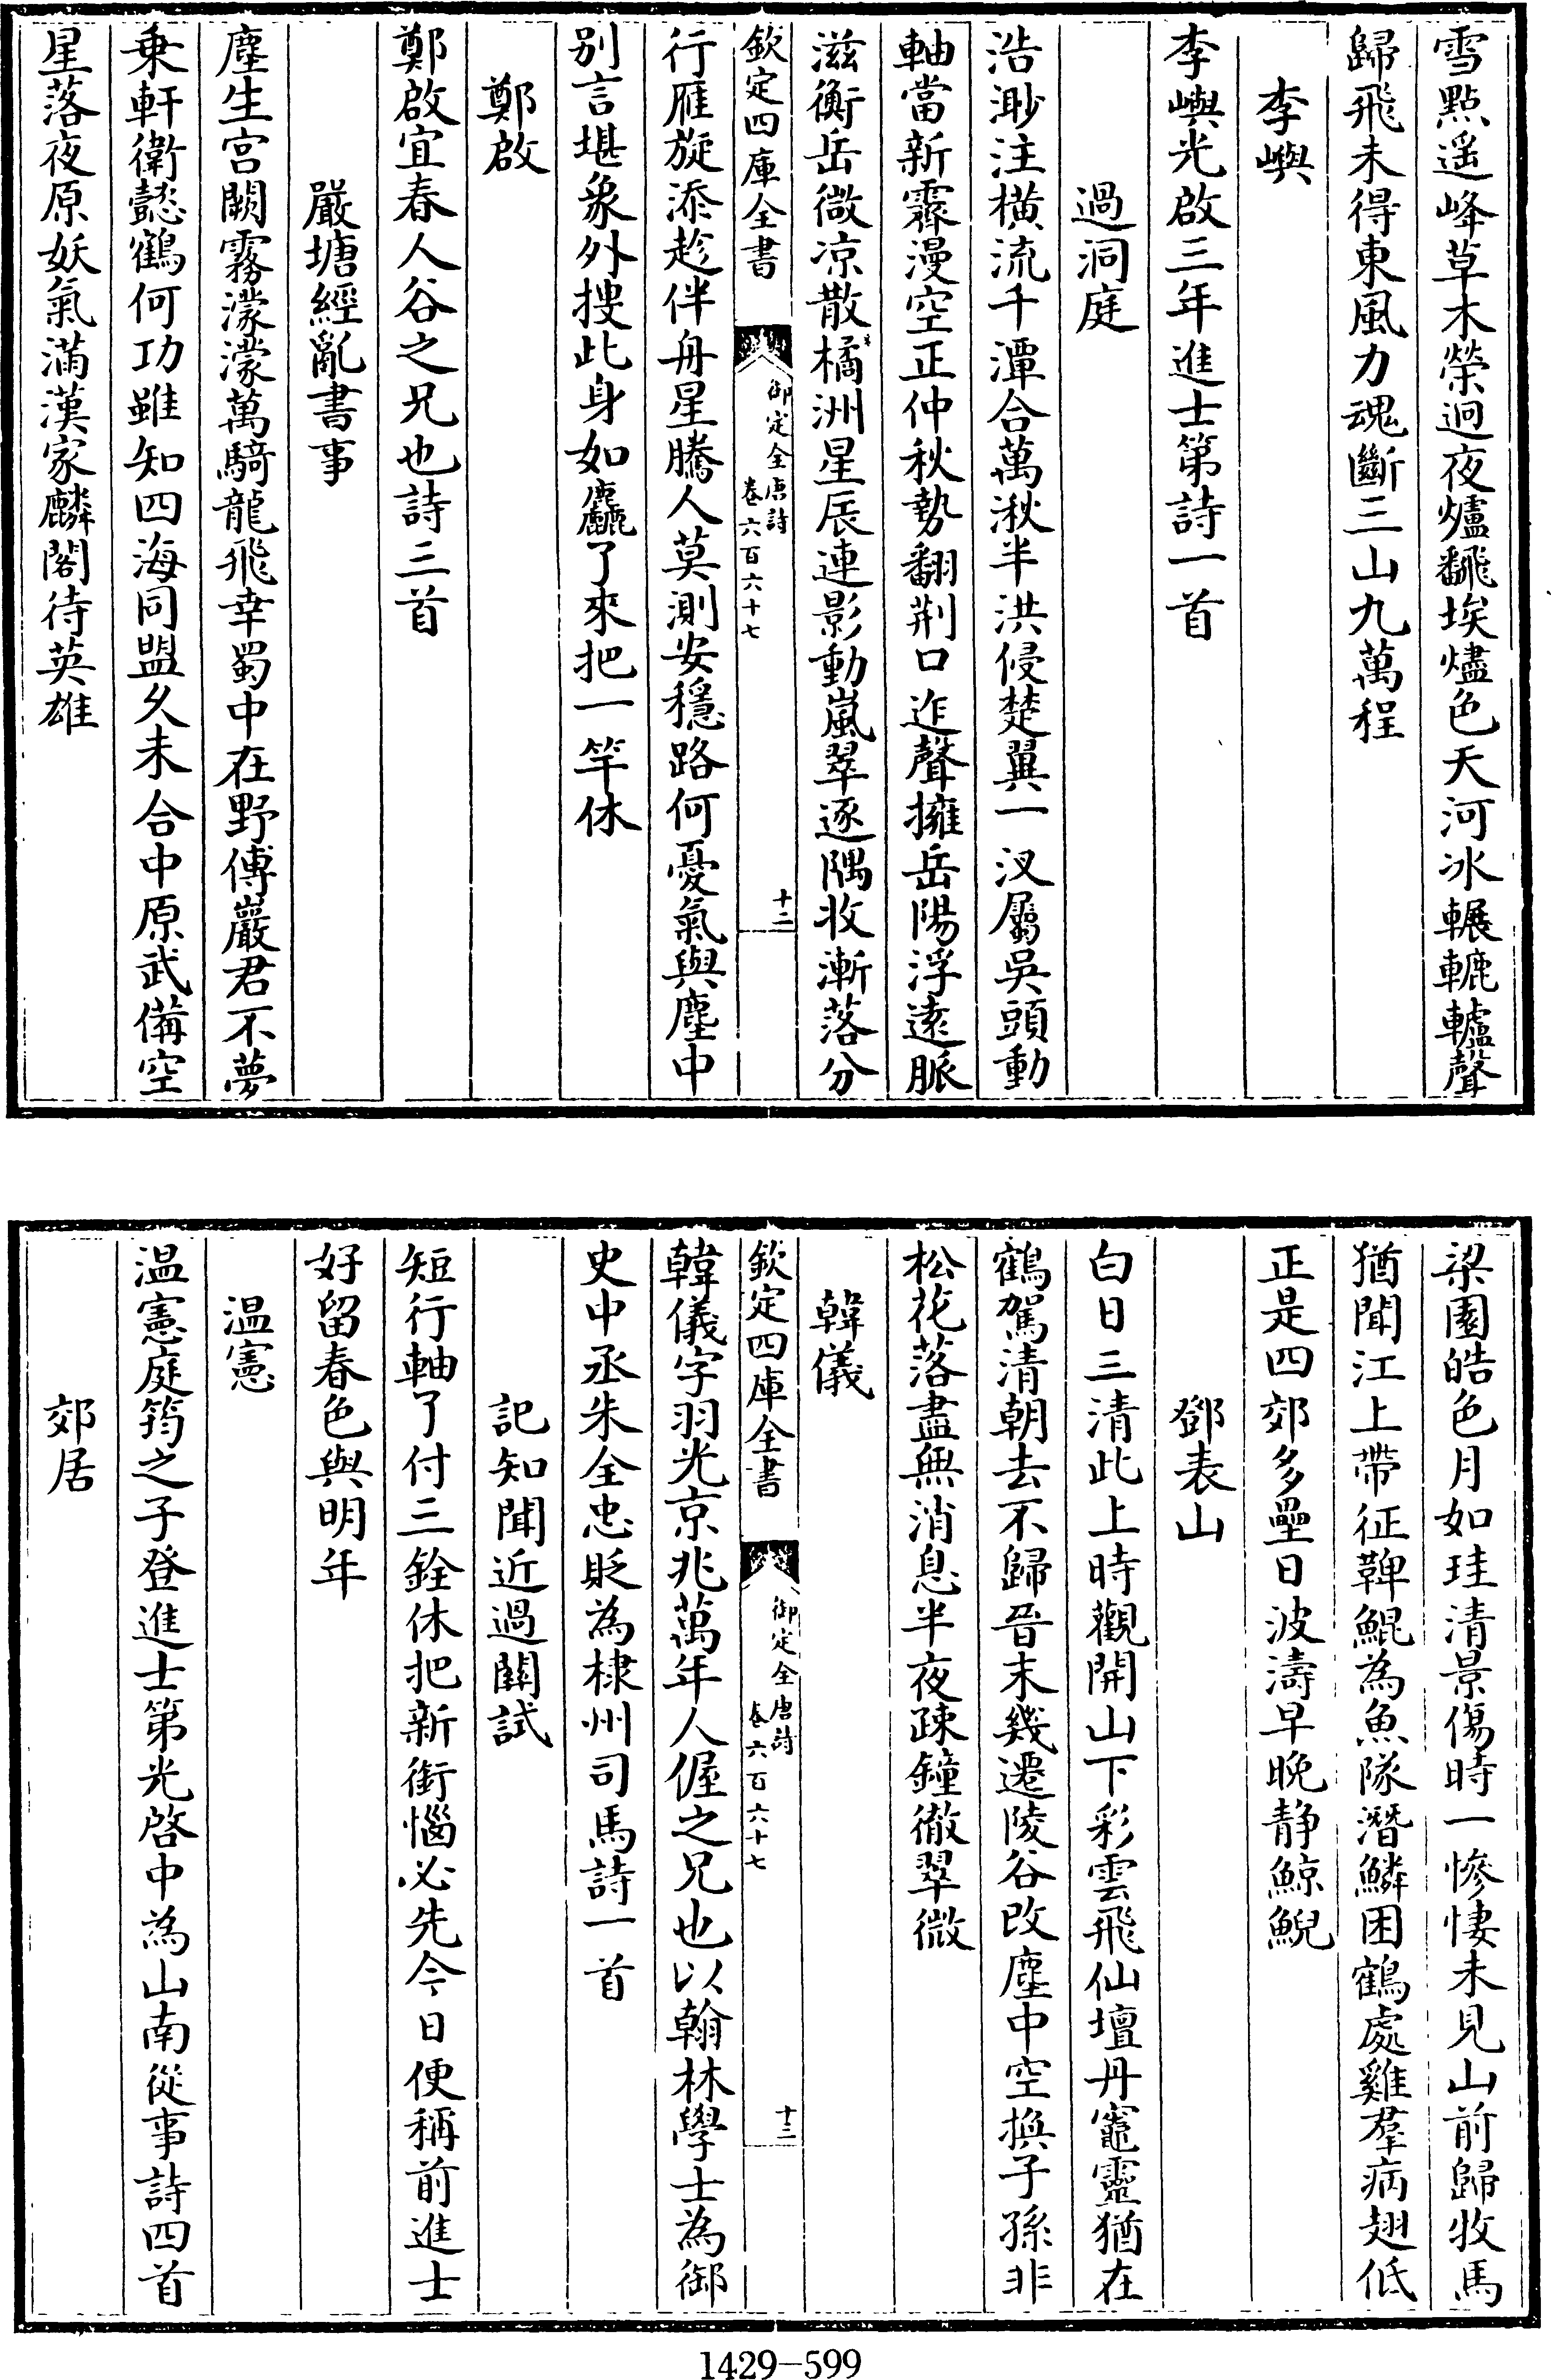 雪點遥峰草木榮迥夜爐翻埃燼色天河冰輾轆轤聲
歸飛未得東風力魂斷三山九萬程
李嶼
李嶼光啟三年進士第詩一首
過洞庭
浩渺注横流千潭合萬湫半洪侵楚翼一汊屬吳頭動
軸當新霽漫空正仲秋勢翻荆口迮聲擁岳陽浮遠脈
滋衡岳微凉散橘洲星辰連影動嵐翠逐隅收漸落分
欽定四庫全書
御定全唐詩
卷六百六十七
十二
行雁旋添趁伴舟星騰人莫測安穩路何憂氣與塵中
别言堪象外搜此身如麤了來把一竿休
鄭啟
鄭啟宜春人谷之兄也詩三首
嚴塘經亂書事
塵生宫闕霧濛濛萬騎龍飛幸蜀中在野傅巖君不夢
乗軒衛懿鶴何功雖知四海同盟久未合中原武備空
星落夜原妖氣滿漢家麟閣待英雄
梁園皓色月如珪清景傷時一慘悽未見山前歸牧馬
猶聞江上帶征鞞鯤為魚隊潛鱗困鶴處雞羣病翅低
正是四郊多壘日波濤早晚静鯨鯢
鄧表山
白日三清此上時觀開山下彩雲飛仙壇丹竈靈猶在
鶴駕清朝去不歸晉末幾遷陵谷改塵中空換子孫非
松花落盡無消息半夜疎鐘徹翠微
韓儀
欽定四庫全書
御定全唐詩
卷六百六十七
十三
韓儀字羽光京兆萬年人偓之兄也以翰林學士為御
史中丞朱全忠貶為棣州司馬詩一首
記知聞近過關試
短行軸了付三銓休把新銜惱必先今日便稱前進士
好留春色與明年
温憲
温憲庭筠之子登進士第光啓中為山南從事詩四首
郊居
1429-599